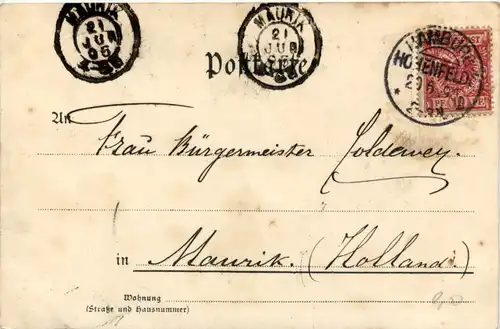 MAURIK
21
JUN
96
MAURIK
21
JUN
HAMBURG
HOHENFELDE
20
6
Postkarte
An
Frau Bürgermeister Coldewey.
in Maurik. (Holland.)
Wohnung
(Straße und Hausnummer)